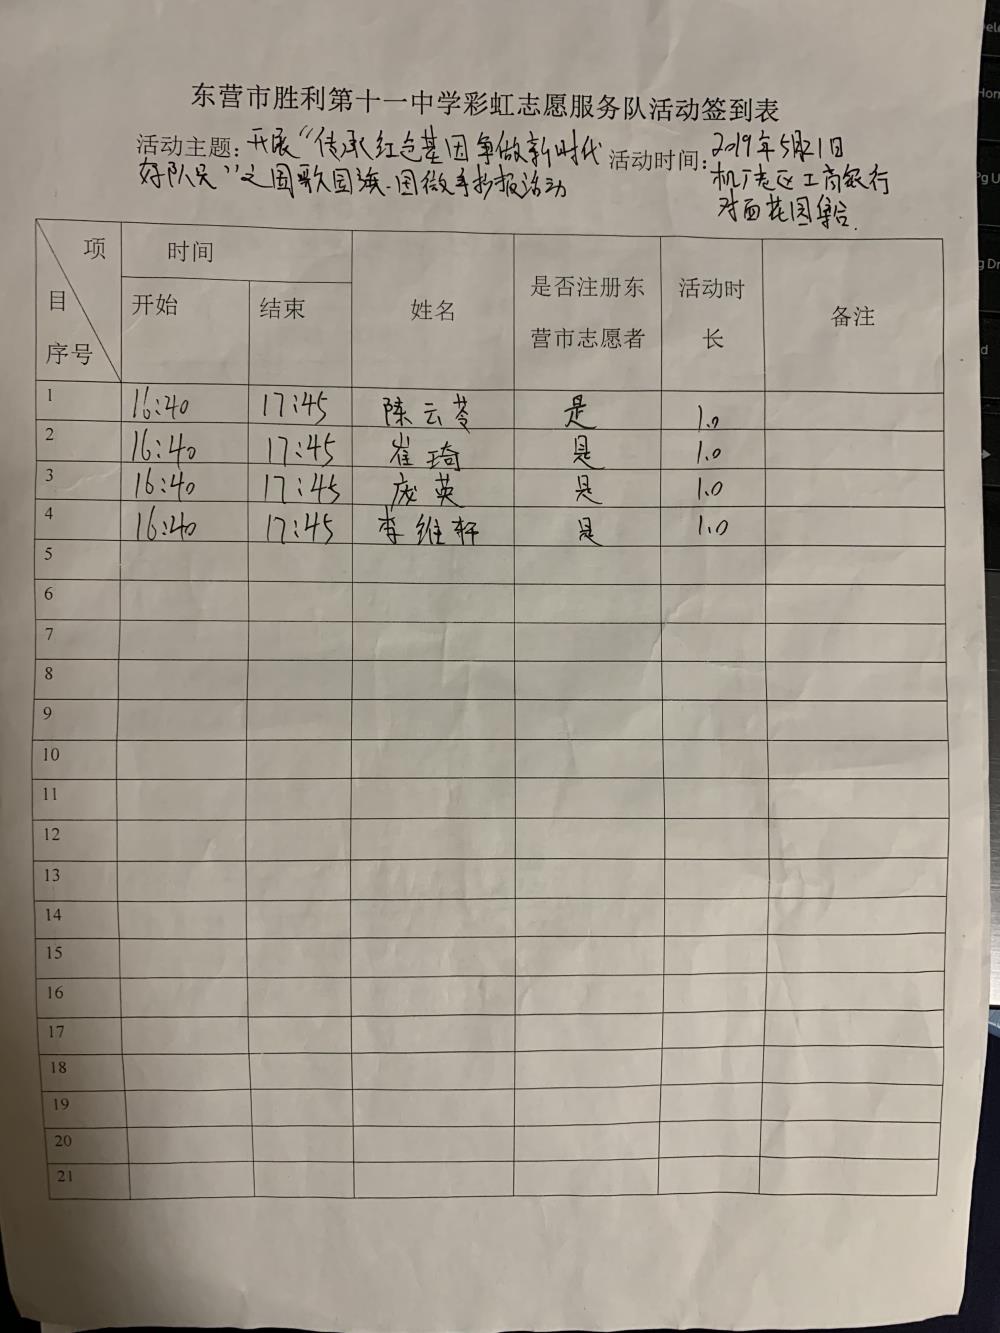 东营市胜利第十一中学彩虹志愿服务队活动签到表
活动主题：开展“传承红色基因争做新时代
好队员”之国歌国旗、国徽手抄报活动
活动时间：2019年5月21日
机厂老区工商银行
对面花园集合.
项 时间
目 开始 结束 姓名 是否注册东 活动时 备注
序号 营市志愿者 长
1 16:40 17:45 陈云苓 是 1.0
2 16:40 17:45 崔琦 是 1.0
3 16:40 17:45 庞英 是 1.0
4 16:40 17:45 李维轩 是 1.0
5
6
7
8
9
10
11
12
13
14
15
16
17
18
19
20
21